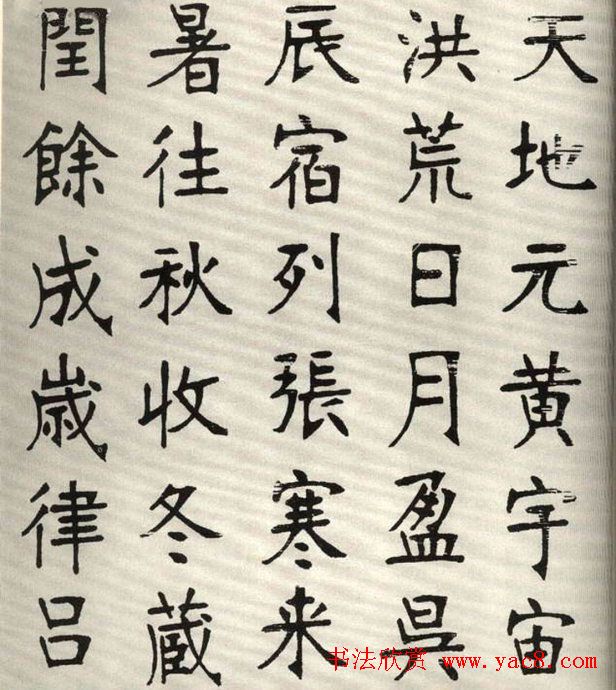 天地元黄宇宙
洪荒日月盈昃
辰宿列張寒来
暑往秋收冬蔵
閏餘成歳律吕
书法欣赏 www.yac8.com